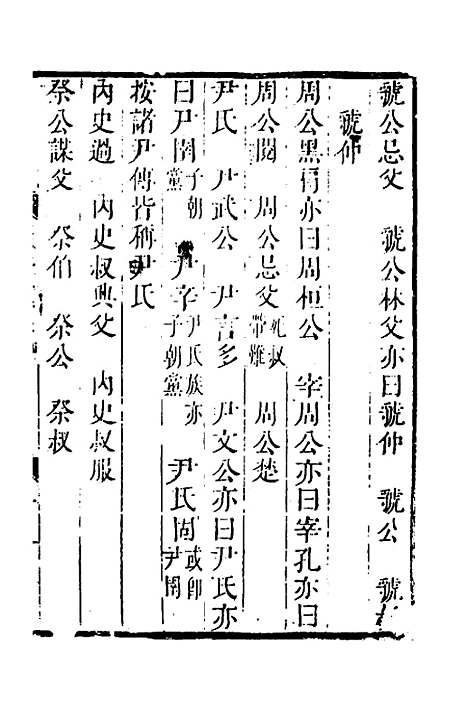 虢公忌父　虢公林父亦曰虢仲　虢公　虢
虢仲
周公黑肩亦曰周桓公　宰周公亦曰宰孔亦曰
周公閱　周公忌父死叔帶難　周公楚
尹氏　尹武公　尹言多　尹文公亦曰尹氏亦
曰尹圉子朝黨　尹辛尹氏族亦子朝黨　尹氏固或卽尹圉
按諸尹傳皆稱尹氏
內史過　內史叔興父　內史叔服
祭公謀父　祭伯　祭公　祭叔